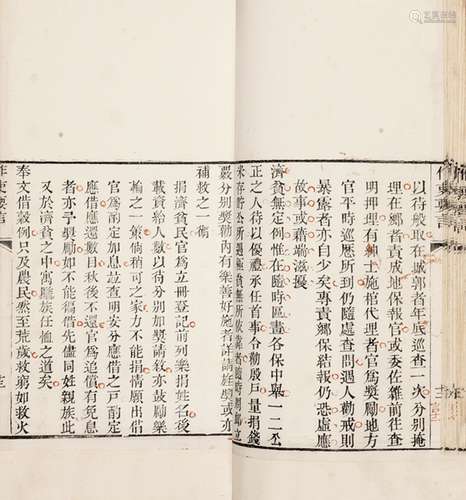 作吏要言
以待般取在城郭者年底巡查一次分別掩
理在鄉者責成地保報官或委佐雜前往查
明押理有紳士施棺代理者官爲獎勵地方
官平時巡歷所到仍隨處查問遇人勸戒則
暴露者亦自少矣專責鄉保結報仍恐虛應
故事或藉端滋擾
濟貧無定例惟在隨時區畫各保中舉一二公
正之人待以優禮承任首事令勸殷戶量捐錢
米存貯公所
穀分別獎勸境內有樂善好施者詳請旌獎或亦
補救之一術
捐濟貧民官爲立冊登記前列樂捐姓名後
載貧給人數以待分別加獎請敘亦鼓勵樂
輸之一策倘稍可之家力不能捐情願出借
官爲酌定加息並查明安分應借之戶酌定
應借應還數目秋後不還官爲追償有免息
者亦予獎勵如不能徧借先儘同姓親族此
又於濟貧之中寓睦族任恤之道矣
奉文借穀例只及農民然至荒歲救窮如救火
作吏要言